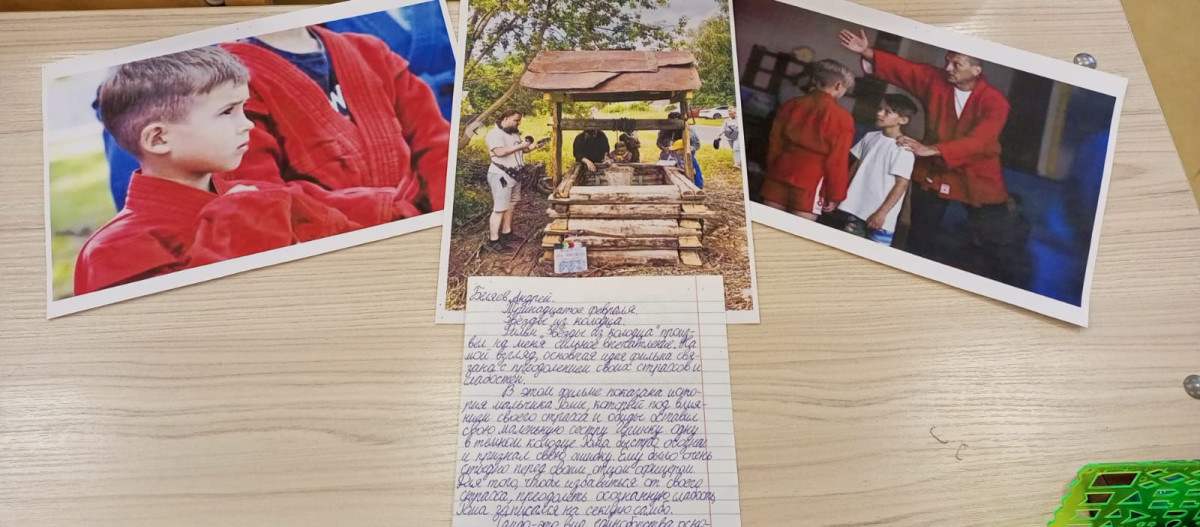 Беляев Андрей.
Тринадцатое февраля.
Звёзды из колодца.
Фильм "Звёзды из колодца" произ-
вёл на меня сильное впечатление. На
мой взгляд, основная идея фильма свя-
зана с преодолением своих страхов и
слабостей.
В этом фильме показана исто-
рия мальчика Ромы, который под влия-
нием своего страха и обиды оставил
свою маленькую сестру Иришку одну
в тёмном колодце. Рома быстро осознал
и признал свою ошибку. Ему было очень
стыдно перед своим отцом офицером
Для того, чтобы избавиться от своего
страха, преодолеть осознанную слабость
Рома записался на секцию самбо.
Самбо-это вид единоборства осно-